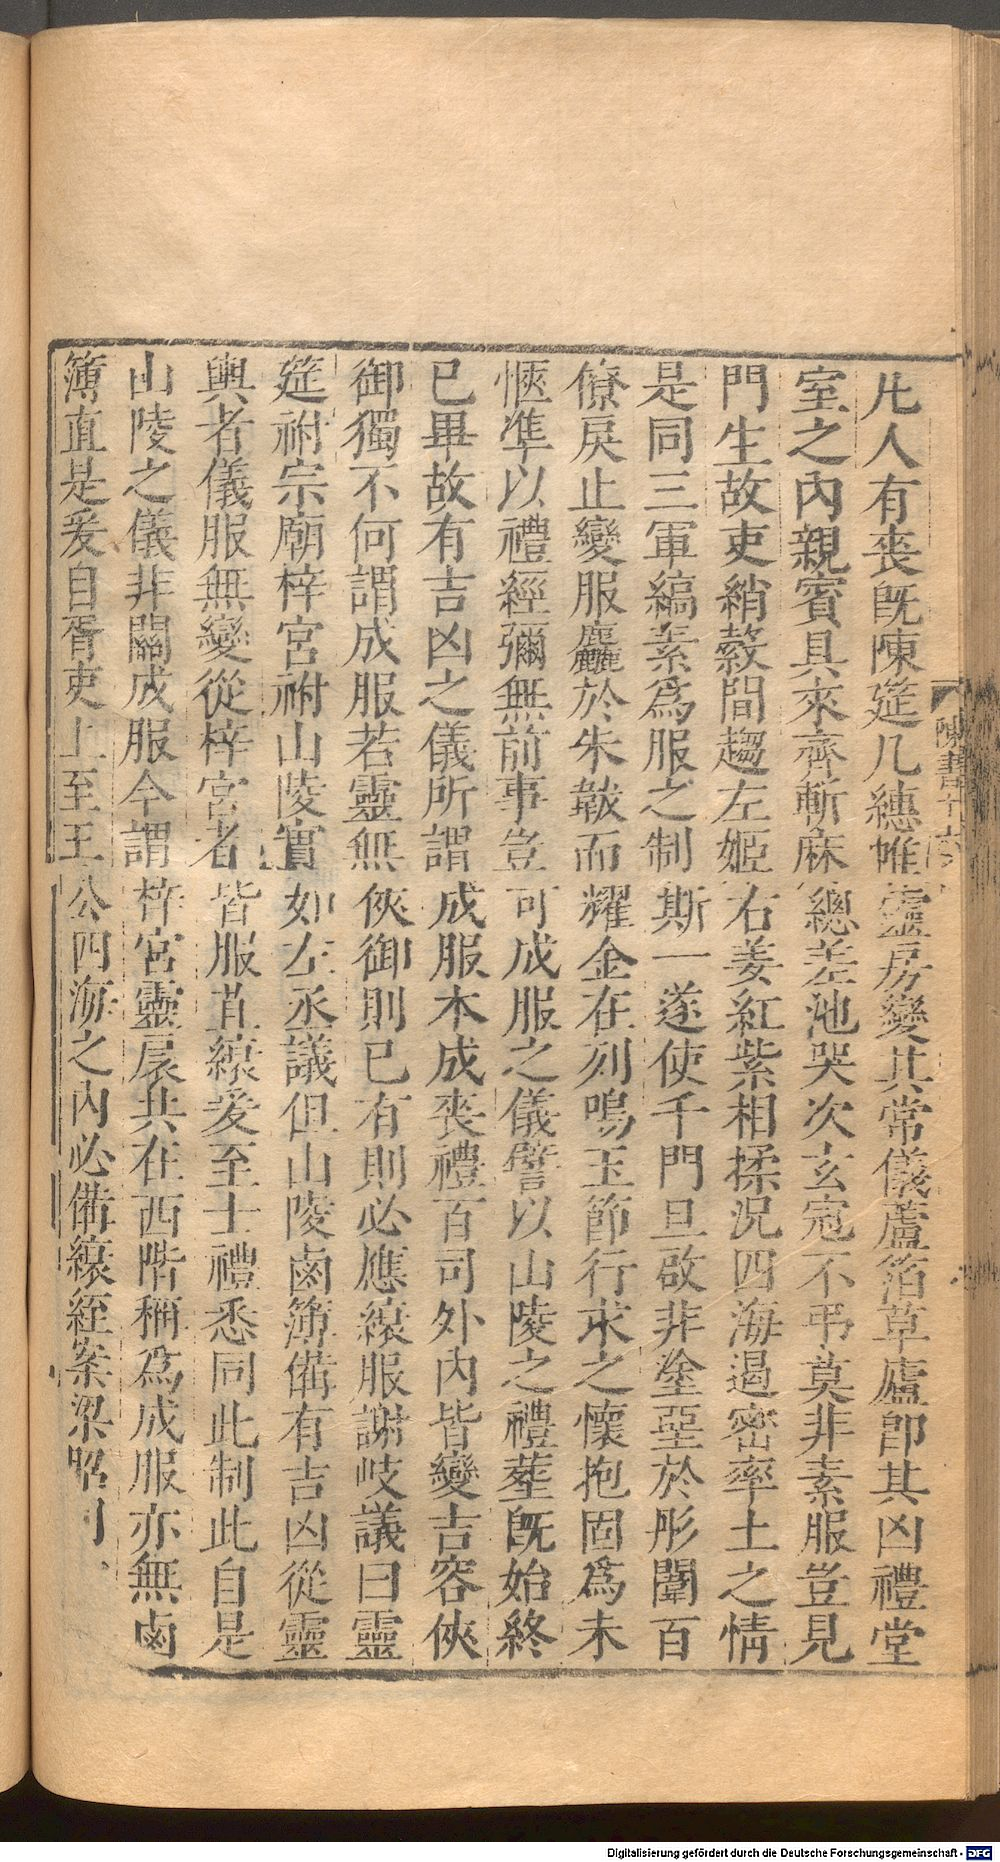 凡人有喪既陳筵几繐帷靈房變其常儀蘆箔草廬即其凶禮堂
室之內親賓具來齊斬麻緦差池哭次玄冠不弔莫非素服豈見
門生故吏綃縠間趨左姬右姜紅紫相揉況四海遏密率土之情
是同三軍縞素為服之制斯一遂使千門旦啟非塗堊於彤闈百
僚戾止變服麤於朱韍而耀金在列鳴玉節行求之懷抱固為未
愜準以禮經彌無前事豈可成服之儀譬以山陵之禮葬既始終
已畢故有吉凶之儀所謂成服本成喪禮百司外內皆變吉容俠
御獨不何謂成服若靈無俠御則已有則必應縗服謝岐議曰靈
筵祔宗廟梓宮祔山陵實如左丞議但山陵鹵簿備有吉凶從靈
輿者儀服無變從梓宮者皆服苴縗爰至士禮悉同此制此自是
山陵之儀非關成服今謂梓宮靈扆共在西階稱為成服亦無鹵
簿直是爰自胥吏上至王公四海之內必備縗絰案梁昭
陳書十六
Digitalisierung gefördert durch die Deutsche Forschungsgemeinschaft - DFG